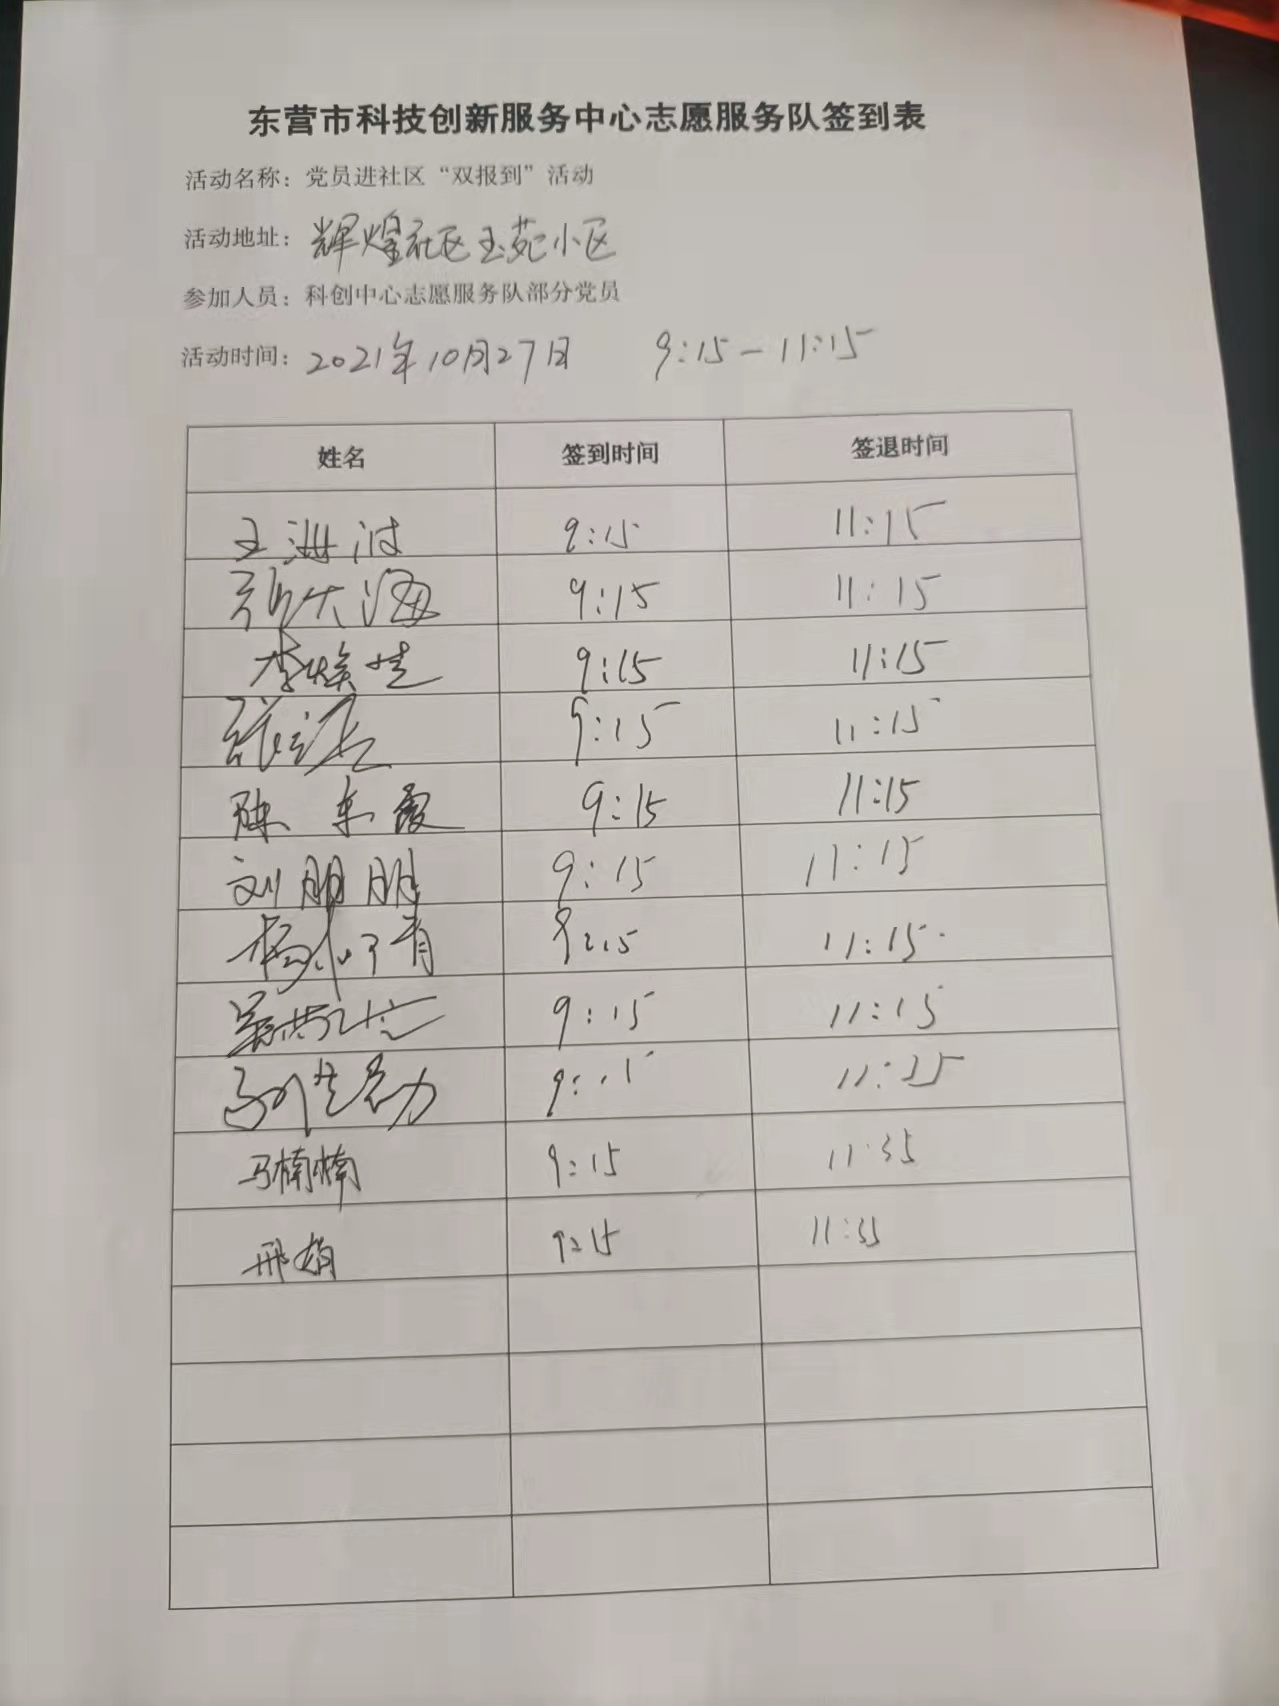 东营市科技创新服务中心志愿服务队签到表
活动名称：党员进社区“双报到”活动
活动地址：辉煌社区玉苑小区
参加人员：科创中心志愿服务队部分党员
活动时间：2021年10月27日 9:15－11:15
姓名 签到时间 签退时间
王洲波 9:15 11:15
大海 9:15 11:15
李焕 9:15 11:15
张 9:15 11:15
陈东霞 9:15 11:15
刘朋朋 9:15 11:15
杨 9:15 11:15
9:15 11:15
11:15
马楠楠 9:15 11:35
邢娟 9:15 11:35